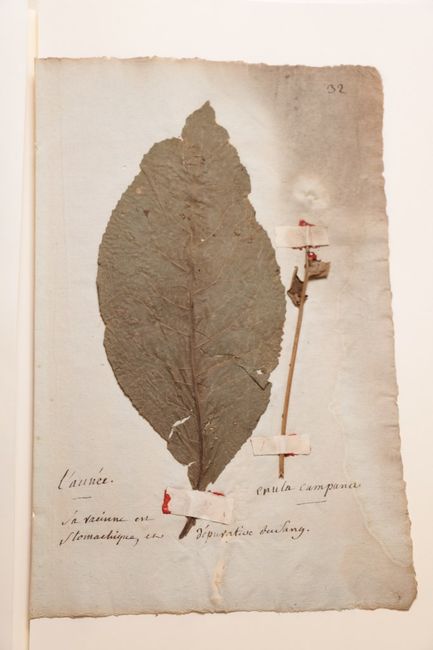 32
l'aunée.
enula campana
Sa racinne est
stomachique, et dépurative du sang.